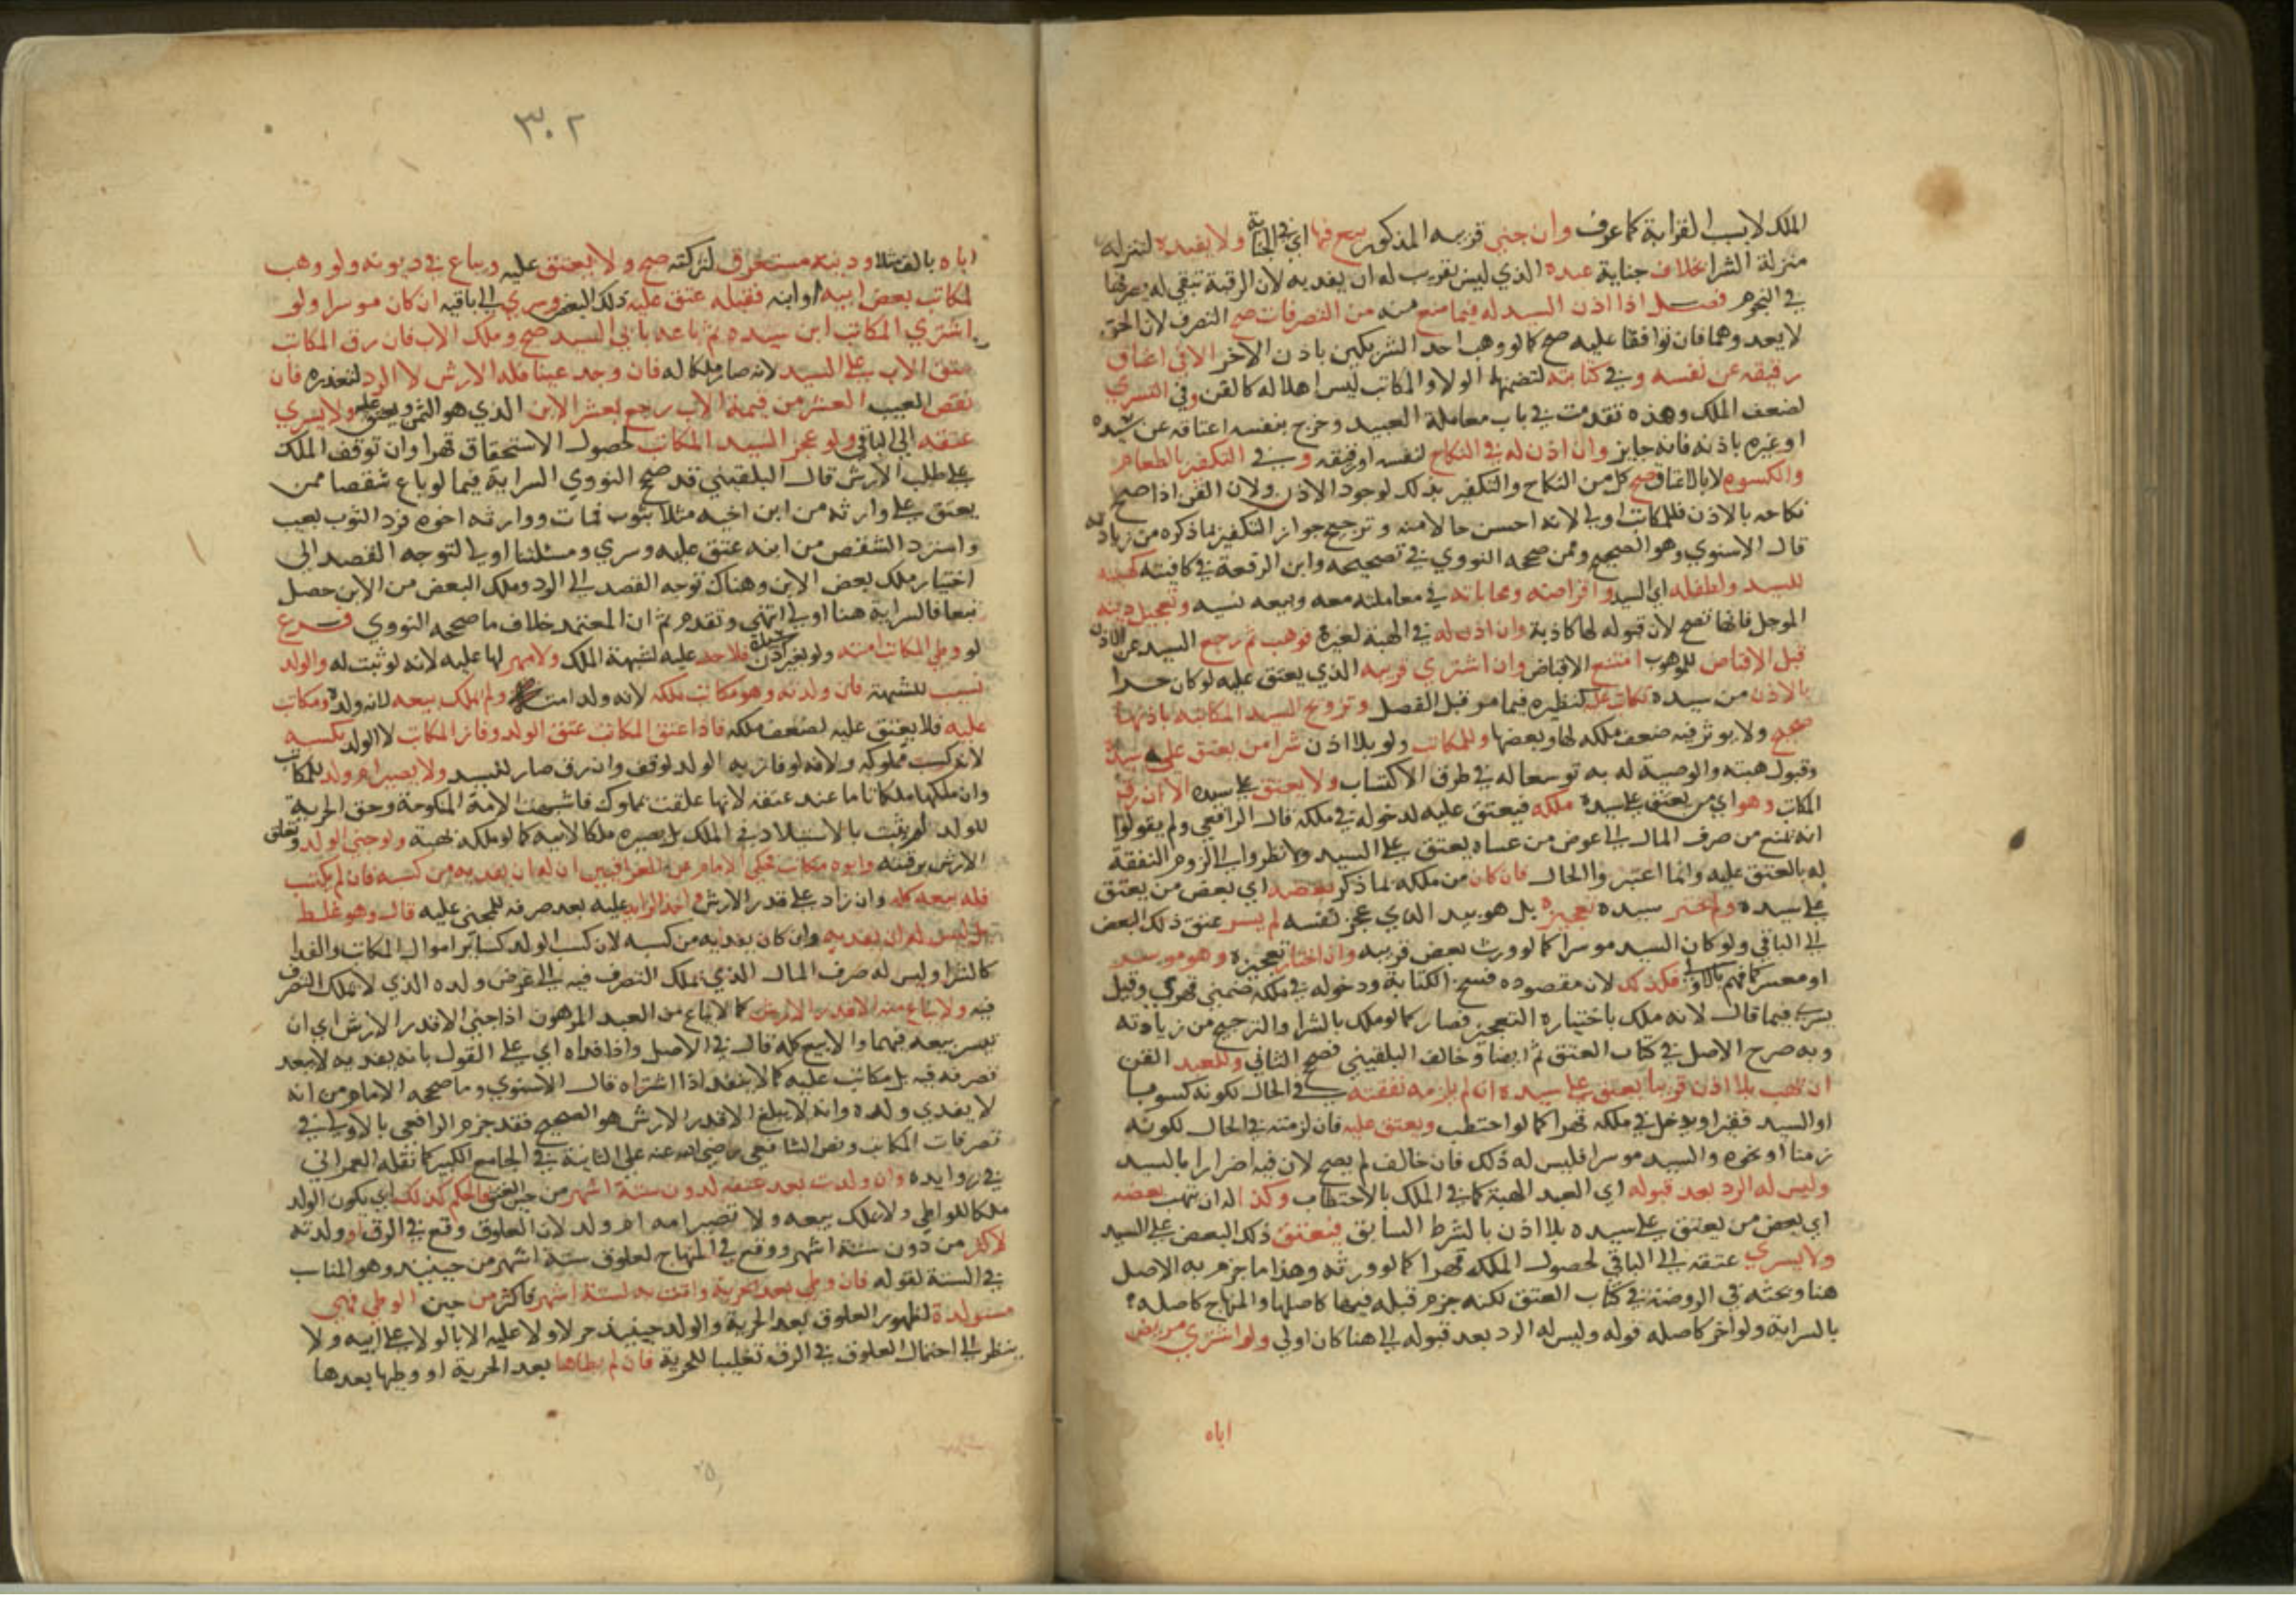 الملك لا بسبب القرابة كما عرف وان جني قريبه المذكور بيع فيها اي في الجناية ولا يفيده لتنزله
منزلة الشرا بخلاف جناية عبده الذي ليس بقريب له ان يفديه لان الرقبة تبقي له يصرفها
في النجوم فصل اذا اذن السيد له فيما منع منه من التصرفات صح التصرف لان الحق
لا يعدوهما فان توافقا عليه صح كما لو وهب احد الشريكين باذن الاخر الا في اعتاق
رقيقه عن نفسه وفي كتابته لتضمنهما الولا والمكاتب ليس اهلا له كالقن وفي التسري
لضعف الملك وهذه تقدمت في باب معاملة العبيد وخرج بنفسه اعتاقه عن سيده
او غيره باذنه فانه جايز وان اذن له في النكاح لنفسه او رقيقه وفي التكفير بالطعام
والكسوة لا بالاعتاق صح كل من النكاح والتكفير بذلك لوجود الاذن ولان القن اذا صح
نكاحه بالاذن فالمكاتب اولي لانه احسن حالا منه وترجيح جواز التكفير بما ذكره من زيادته
قال الاسنوي وهو الصحيح وممن صححه النووي في تصحيحه وابن الرفعة في كافيته كهبته
للسيد ولطفله اي السيد واقراضه ومحاباته في معاملته معه وبيعه نسيه وتعجيل دينه
الموجل فانها تصح لان قبوله لها كاذنه وان اذن له في الهبة لغيره فوهب ثم رجع السيد عن الاذن
قبل الاقباض للموهوب امتنع الاقباض وان اشتري قريبه الذي يعتق عليه لو كان حرا
بالاذن من سيده تكاتب عليه لنظيره فيما مر قبل الفصل وتزويج السيد المكاتبة باذنها
صحيح ولا يوثر فيه ضعف ملكه لها وبعضها وللمكاتب ولو بلا اذن شرا من يعتق علي سيده
وقبول هبته والوصية له به توسعا له في طرق الاكتساب ولا يعتق علي سيده الا ان رق
المكاتب وهو اي من يعتق علي سيده ملكه فيعتق عليه لدخوله في ملكه قال الرافعي ولم يقولوا
انه يمنع من صرف المال الي عوض من عساه يعتق علي السيد ولا نظروا الي لزوم النفقة
له بالعتق عليه وانما اعتبروا الحال فان كان من ملكه بما ذكر بعضه اي بعض من يعتق
علي سيده ولم يختر سيده تعجيزه بل هو بيد الذي عجز نفسه لم يسر عتق ذلك البعض
الي الباقي ولو كان السيد موسرا كما لو ورث بعض قريبه وان اختار تعجيزه وهو موسر
او معسر كما فهم بالاولي فكذلك لان مقصوده فسخ الكتابة ودخوله في ملكه ضمني قهري وقيل
يسري فيما قال لانه ملك باختياره التعجيز فصار كما لو ملك بالشرا والترجيح من زيادته
وبه صرح الاصل في كتاب العتق ثم ايضا وخالف البلقيني فصحح الثاني وللعبد القن
ان يتهب بلا اذن قريبا يعتق علي سيده ان لم يلزمه نفقته في الحال لكونه كسوبا
او السيد فقيرا ويدخل في ملكه قهرا كما لو احتطب ويعتق عليه فان لزمته في الحال لكونه
زمنا او نحوه والسيد موسرا فليس له ذلك فان خالف لم يصح لان فيه اضرارا بالسيد
وليس له الرد بعد قبوله اي العبد الهبة كما في الملك بالاحتطاب وكذا له ان يتهب بعضه
اي بعض من يعتق علي سيده بلا اذن بالشرط السابق فيعتق ذلك البعض علي السيد
ولا يسري عتقه الي الباقي لحصول الملك قهرا كما لو ورثه وهذا ما جزم به الاصل
هنا وبحثه في الروضة في كتاب العتق لكنه جزم قبله فيها كاصلها والمنهاج كاصله
بالسراية ولو اخر كاصله قوله وليس له الرد بعد قبوله الي هنا كان اولي ولو اشتري مريض
اباه
٣٠٢
اباه بالف مثلا ودينه مستغرق لتركته صح ولا يعتق عليه ويباع في ديونه ولو وهب
لمكاتب بعض ابيه او ابنه فقبله عتق عليه ذلك البعض وسري الي باقيه ان كان موسرا ولو
اشتري المكاتب ابن سيده ثم باعه بابي السيد صح وملك الاب فان رق المكاتب
عتق الاب علي السيد لانه صار ملكا له فان وجد عيبا فله الارش لا الرد لتعذره فان
نقص العيب العشر من قيمة الاب رجع بعشر الابن الذي هو الثمن ويعتق عليه ولا يسري
عتقه الي الباقي ولو عجز السيد المكاتب لحصول الاستحقاق قهرا وان توقف الملك
علي طلب الارش قال البلقيني قد صحح النووي السراية فيما لو باع شقصا ممن
يعتق علي وارثه من ابن اخيه مثلا بثوب فمات ووارثه اخوه فرد الثوب بعيب
واسترد الشقص من ابنه عتق عليه وسري ومسئلتنا اولي لتوجه القصد الي
اختيار ملك بعض الابن وهناك توجه القصد الي الرد وملك البعض من الابن حصل
تبعا فالسراية هنا اولي انتهي وتقدم ثم ان المعتمد خلاف ما صححه النووي فرع
لو وطي المكاتب امته ولو بغير اذن سيده فلا حد عليه لشبهة الملك ولا مهر لها عليه لانه لو ثبت له والولد
نسيب للشبهة فان ولدته وهو مكاتب ملكه لانه ولد امته ولم يملك بيعه لانه ولده ومكاتب
عليه فلا يعتق عليه لضعف ملكه فاذا عتق المكاتب عتق الولد وفاز المكاتب لا الولد بكسبه
لانه كسب مملوكه ولانه لو فاز به الولد لوقف وان رق صار للسيد ولا يصير ام ولد للمكاتب
وان ملكها ملكا تاما عند عتقه لانها علقت بمملوك فاشبهت الامة المنكوحة وحق الحرية
للولد لم يثبت بالاستيلاد في الملك بل بصيره ملكا لابيه كما لو ملكه بهبة ولو جني الولد وتعلق
الارش برقبته وابوه مكاتب حكي الامام عن العراقيين ان له ان يفديه من كسبه فان لم يكتسب
فله بيعه كله وان زاد علي قدر الارش واخذ الزايد عليه بعد صرفه للمجني عليه قال وهو غلط
بل ليس له ان يفديه وان كان يفديه من كسبه لان كسب الولد كساير اموال المكاتب والفدا
كالشرا وليس له صرف المال الذي يملك التصرف فيه الي عوض ولده الذي لا يملك التصرف
فيه ولا يباع منه الا قدر الارش كما لا يباع من العبد المرهون اذا جني الا قدر الارش اي ان
تيسر بيعه فيهما والا بيع كله قال في الاصل واذا فداه اي علي القول بانه يفديه لا ينفذ
تصرفه فيه بل مكاتب عليه كما لا ينفذ اذا اشتراه قال الاسنوي وما صححه الامام من انه
لا يفدي ولده وانه لا يبلغ الا قدر الارش هو الصحيح فقد جزم الرافعي بالاولي في
تصرفات المكاتب ونص الشافعي رضي الله عنه علي الثانية في الجامع الكبير كما نقله العمراني
في زوايده وان ولدت بعد عتقه لدون ستة اشهر من حين العتق فالحكم كذلك اي يكون الولد
ملكا للواطي ولا يملك بيعه ولا تصير امه ام ولد لان العلوق وقع في الرق او ولدته
لاكثر من دون ستة اشهر ووقع في المنهاج لعلوق ستة اشهر من حينيذ وهو المناسب
في الستة لقوله فان وطي بعد الحرية واتت به لستة اشهر فاكثر من حين الوطي فهي
مستولدة لظهور العلوق بعد الحرية والولد حينيذ حر لا ولا عليه الا بالولا علي ابيه ولا
ينظر الي احتمال العلوق في الرق تغليبا للحرية فان لم يطاها بعد الحرية او وطيها بعدها